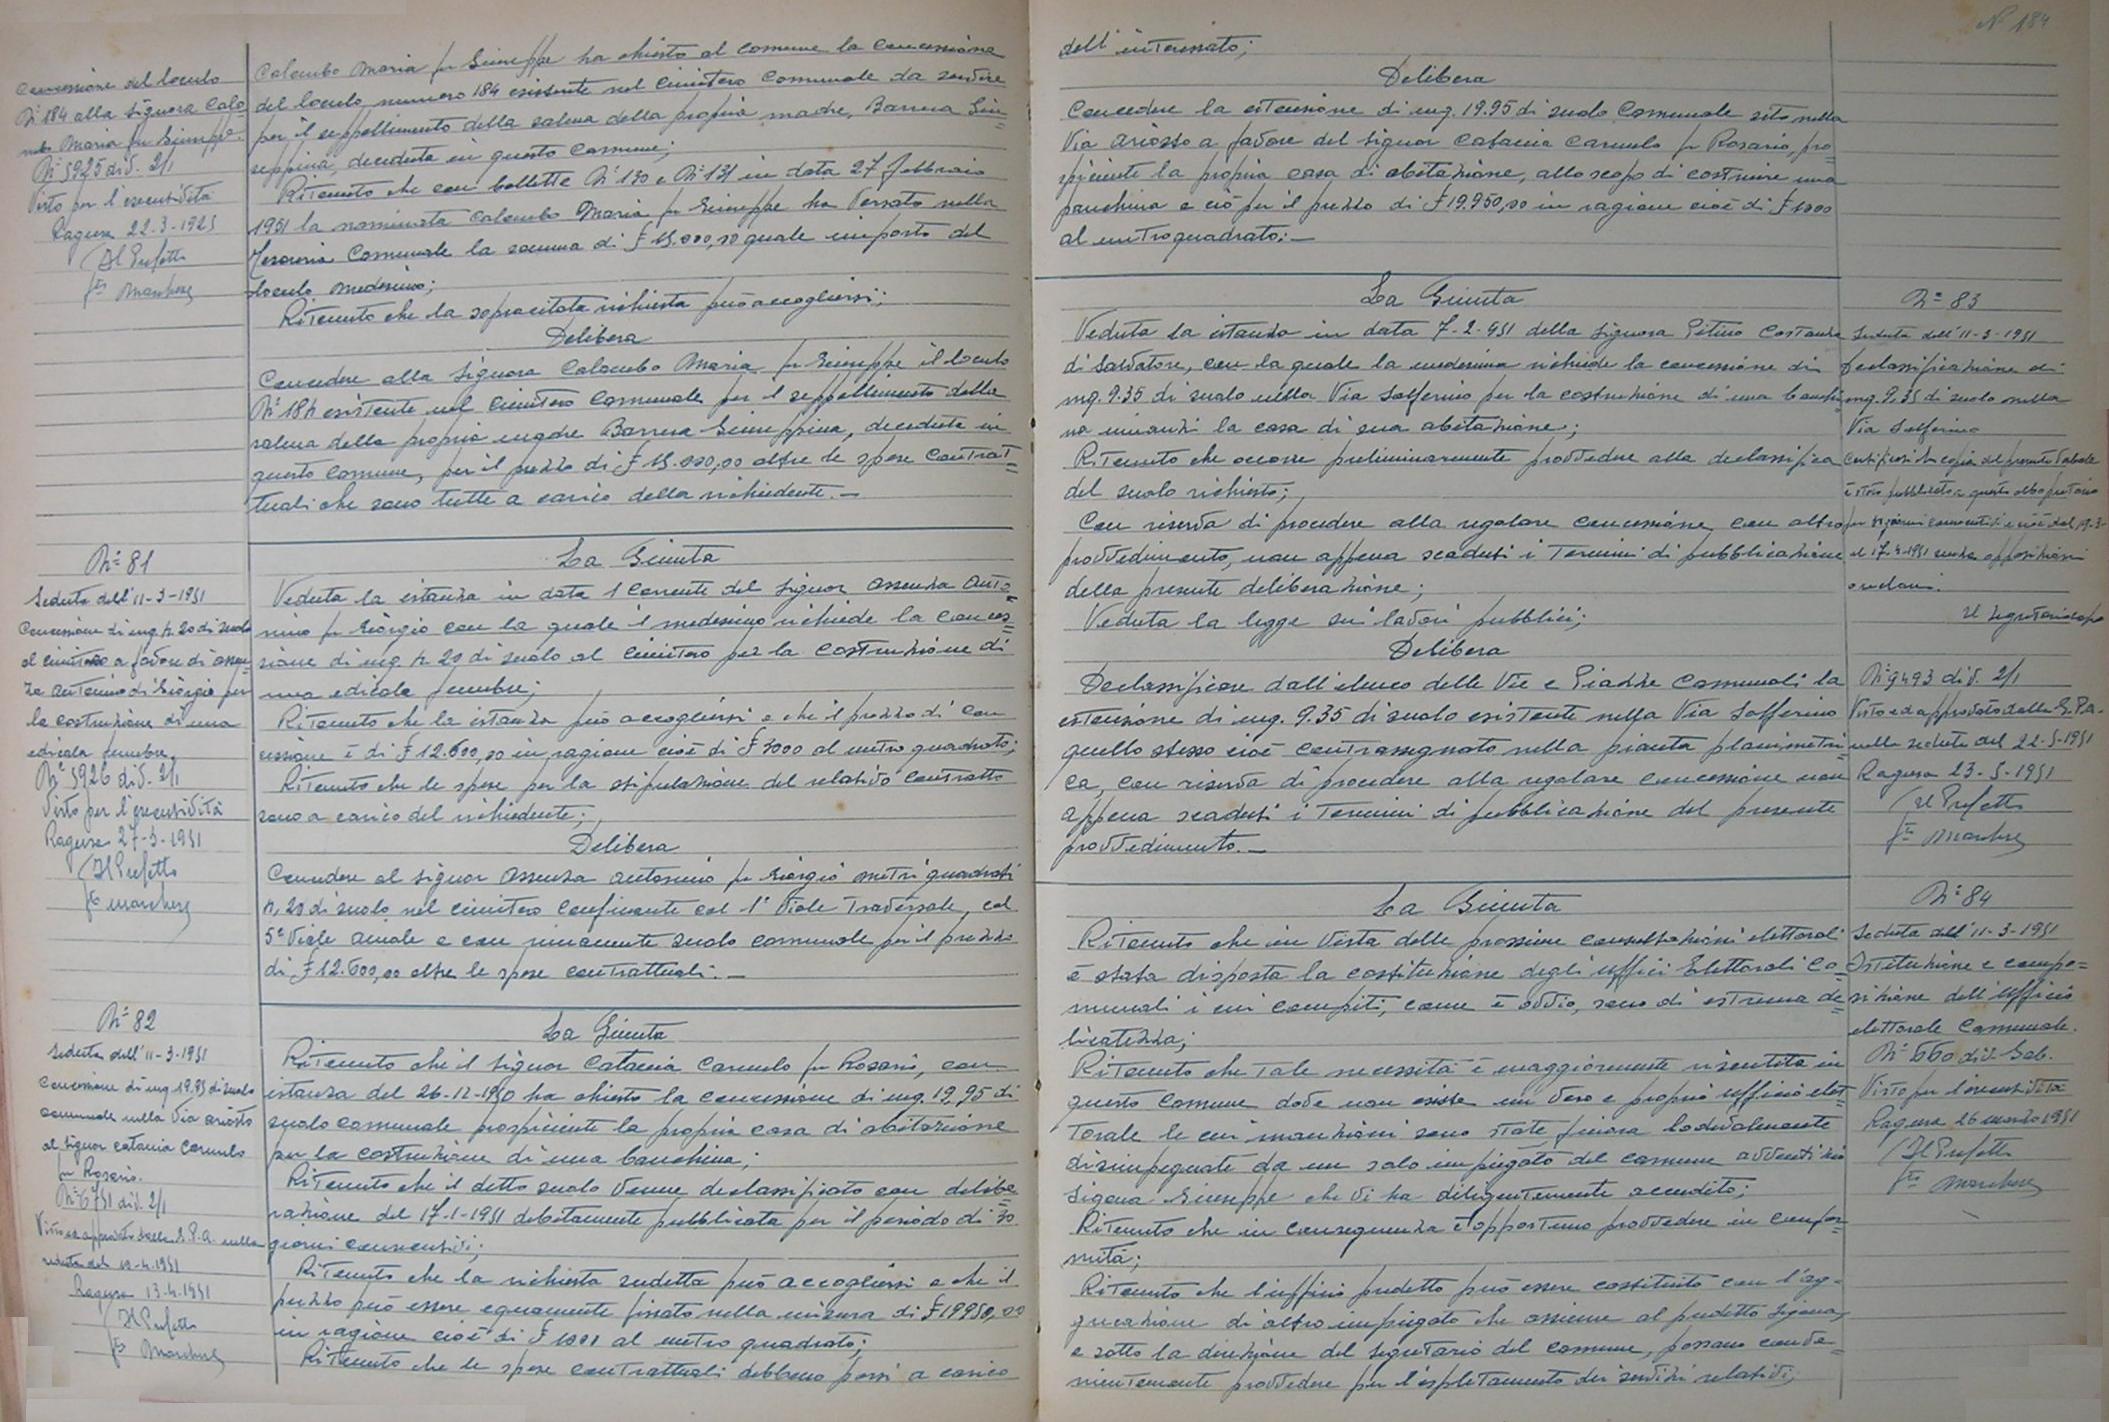 Concessione del loculo
N° 184 alla Signora Colo-
mbo Maria fu Giuseppe.
N° 5925 di d. 2/1
Visto per l'esecutività
Ragusa 22-3-1951
Il Prefetto
fto Marchese
Colombo Maria fu Giuseppe ha chiesto al Comune la concessione
del loculo numero 184 esistente nel Cimitero Comunale da servire
per il seppellimento della salma della propria madre, Barrera Giu=
seppina, deceduta in questo Comune;
Ritenuto che con bollette N° 130 e N° 131 in data 27 febbraio
1951 la nominata Colombo Maria fu Giuseppe ha versato nella
Tesoreria Comunale la somma di £ 15.000,00 quale importo del
loculo medesimo;
Ritenuto che la sopracitata richiesta può accogliersi;
Delibera
Concedere alla Signora Colombo Maria fu Giuseppe il loculo
N° 184 esistente nel Cimitero Comunale per il seppellimento della
salma della propria madre Barrera Giuseppina, deceduta in
questo Comune, per il prezzo di £ 15.000,00 oltre le spese contrat=
tuali che sono tutte a carico della richiedente. —
N° 81
Seduta dell'11-3-1951
Concessione di mq. 4.20 di suolo
al cimitero a favore di Assen
za Antonino di Giorgio per
la costruzione di una
edicola funebre.
N° 5926 di d. 2/1
Visto per l'esecutività
Ragusa 27-3-1951
Il Prefetto
fto Marchese
La Giunta
Veduta la istanza in data 1 corrente del Signor Assenza Anto=
nino fu Giorgio con la quale il medesimo richiede la conces=
sione di mq. 4.20 di suolo al Cimitero per la costruzione di
una edicola funebre;
Ritenuto che la istanza può accogliersi e che il prezzo di con
cessione è di £ 12.600,00 in ragione cioè di £ 3000 al metro quadrato;
Ritenuto che le spese per la stipulazione del relativo contratto
sono a carico del richiedente;
Delibera
Concedere al Signor Assenza Antonino fu Giorgio metri quadrati
4,20 di suolo nel cimitero confinante col 1° Viale Traversale, col
5° Viale e con rimanente suolo comunale per il prezzo
di £ 12.600,00 oltre le spese contrattuali. —
N° 82
Seduta dell'11-3-1951
Concessione di mq. 19.95 di suolo
comunale nella Via Ariosto
al Signor Catania Carmelo
fu Rosario.
N° 6751 di d. 2/1
Visto ed approvato dalla G.P.A. nella
seduta del 12-4-1951
Ragusa 13-4-1951
Il Prefetto
fto Marchese
La Giunta
Ritenuto che il Signor Catania Carmelo fu Rosario, con
istanza del 26-12-1950 ha chiesto la concessione di mq. 19,95 di
suolo comunale prospiciente la propria casa di abitazione
per la costruzione di una banchina;
Ritenuto che il detto suolo venne declassificato con delibe=
razione del 17-1-1951 debitamente pubblicata per il periodo di 30
giorni consecutivi;
Ritenuto che la richiesta sudetta può accogliersi e che il
prezzo può essere equamente fissato nella misura di £ 19950,00
in ragione cioè di £ 1000 al metro quadrato;
Ritenuto che le spese contrattuali debbono porsi a carico
N° 184
dell'interessato;
Delibera
Concedere la estensione di mq. 19.95 di suolo Comunale sito nella
Via Ariosto a favore del Signor Catania Carmelo fu Rosario, pro=
spiciente la propria casa di abitazione, allo scopo di costruire una
banchina e ciò per il prezzo di £ 19.950,00 in ragione cioè di £ 1000
al metro quadrato. —
La Giunta
Veduta la istanza in data 7-2-951 della Signora Pitino Costanza
di Salvatore, con la quale la medesima richiede la concessione di
mq. 9.35 di suolo nella Via Solferino per la costruzione di una banchi
na innanzi la casa di sua abitazione;
Ritenuto che occorre preliminarmente provvedere alla declassifica
del suolo richiesto;
Con riserva di procedere alla regolare concessione con altro
provvedimento, non appena scaduti i termini di pubblicazione
della presente deliberazione;
Veduta la legge sui lavori pubblici;
Delibera
Declassificare dall'elenco delle Vie e Piazze Comunali la
estensione di mq. 9.35 di suolo esistente nella Via Solferino
quello stesso cioè contrassegnato nella pianta planimetri=
ca, con riserva di procedere alla regolare concessione non
appena scaduti i termini di pubblicazione del presente
provvedimento. —
N° 83
Seduta dell'11-3-1951
Declassificazione di
mq. 9,35 di suolo nella
Via Solferino
Certificasi che copia del presente verbale
è stata pubblicata a questo albo pretorio
per giorni consecutivi e cioè dal 19-3-
al 17-4-1951 senza opposizioni
o reclami.
Il Segretario capo
N° 9493 di d. 2/1
Visto ed approvato dalla G.P.A.
nella seduta del 22-5-1951
Ragusa 23-5-1951
Il Prefetto
fto Marchese
La Giunta
Ritenuto che in vista delle prossime consultazioni elettorali
è stata disposta la costituzione degli uffici Elettorali Co=
munali i cui compiti, come è ovvio, sono di estrema de=
licatezza;
Ritenuto che tale necessità è maggiormente risentita in
questo Comune dove non esiste un vero e proprio ufficio elet=
torale le cui mansioni sono state finora lodevolmente
disimpegnate da un solo impiegato del comune avventizio
Sigona Giuseppe che vi ha diligentemente accudito;
Ritenuto che in conseguenza è opportuno provvedere in confor=
mità;
Ritenuto che l'ufficio predetto può essere costituito con l'ag-
gregazione di altro impiegato che assieme al predetto Sigona,
e sotto la direzione del Segretario del Comune, possano conve=
nientemente provvedere per l'espletamento dei servizi relativi;
N° 84
Seduta dell'11-3-1951
Istituzione e compo=
sizione dell'ufficio
elettorale Comunale.
N° 660 di d. Gab.
Visto per l'esecutività
Ragusa 26 marzo 1951
Il Prefetto
fto Marchese